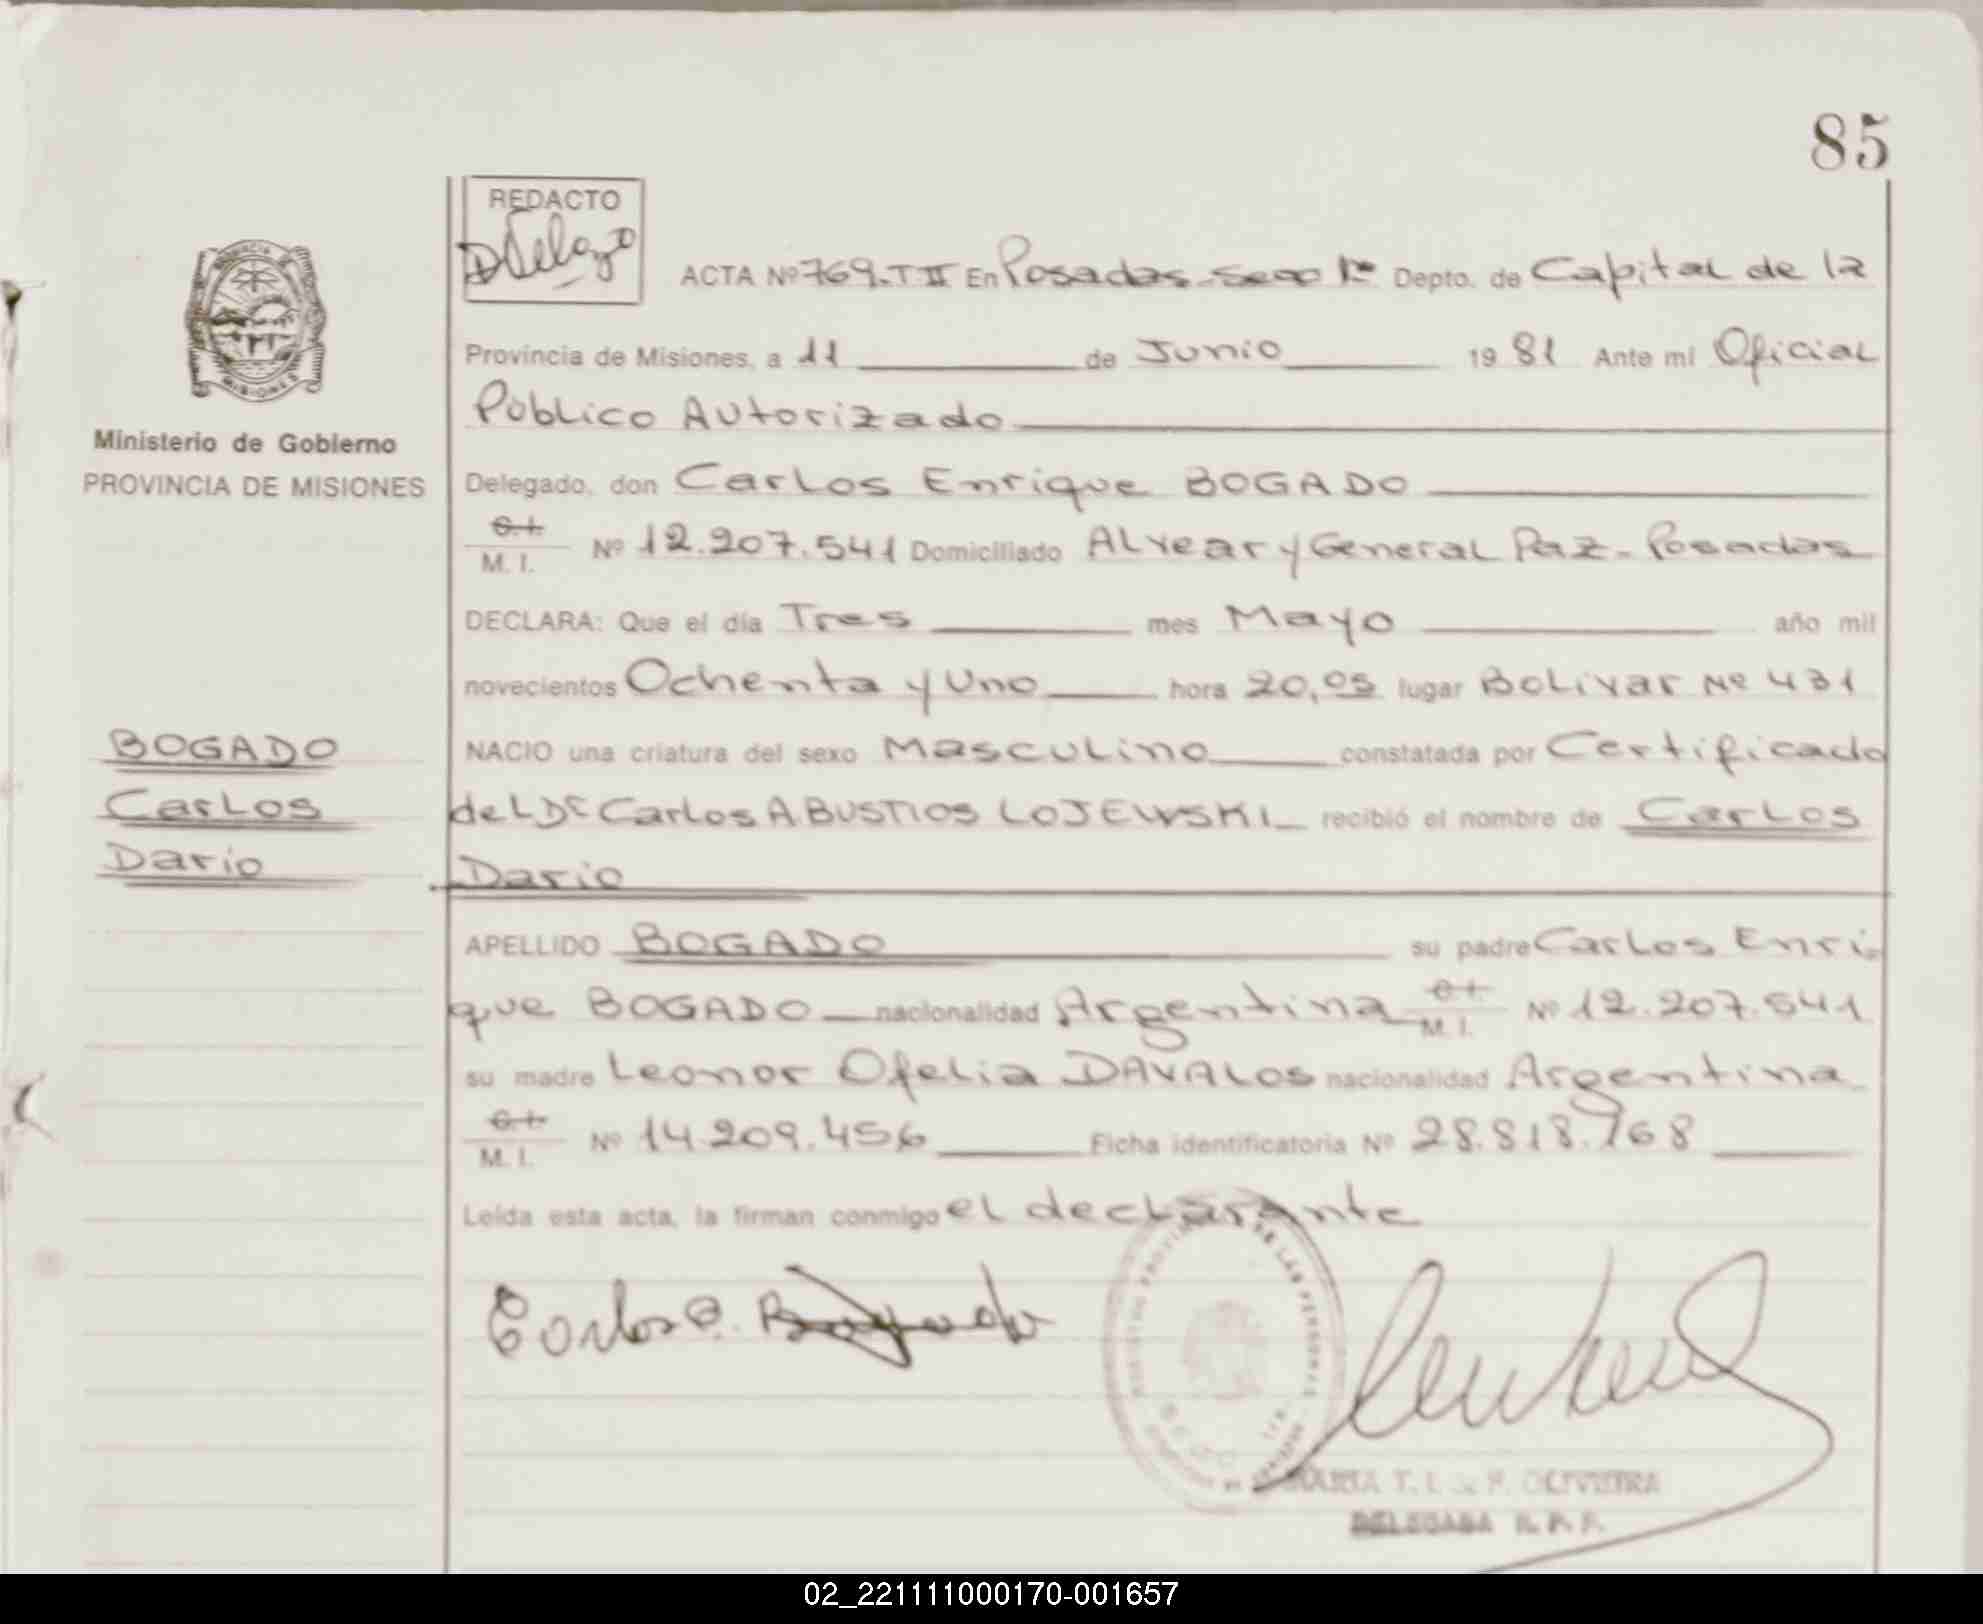 85
REDACTO
ACTA Nº 769.T II En Posadas - Secc 1ª Depto. de Capital de la
Provincia de Misiones, a 11 de Junio 1981 Ante mí Oficial
Público Autorizado
Ministerio de Gobierno
PROVINCIA DE MISIONES
Delegado, don Carlos Enrique BOGADO
C.I.
M. I. Nº 12.207.541 Domiciliado Alvear y General Paz - Posadas
DECLARA: Que el día Tres mes Mayo año mil
novecientos Ochenta y Uno hora 20,05 lugar Bolivar Nº 431
BOGADO
Carlos
Dario
NACIO una criatura del sexo Masculino constatada por Certificado
del Dr Carlos A. BUSTIOS LOJEWSKI recibió el nombre de Carlos
Dario
APELLIDO BOGADO su padre Carlos Enri-
que BOGADO nacionalidad Argentina C.I. M. I. Nº 12.207.541
su madre Leonor Ofelia DAVALOS nacionalidad Argentina
C.I.
M. I. Nº 14.209.456 Ficha identificatoria Nº 28.818.768
Leída esta acta, la firman conmigo el declarante
Carlos E. Bogado
DE LAS PERSONAS
OLIVEIRA
DELEGADA R. P. P.
02_221111000170-001657